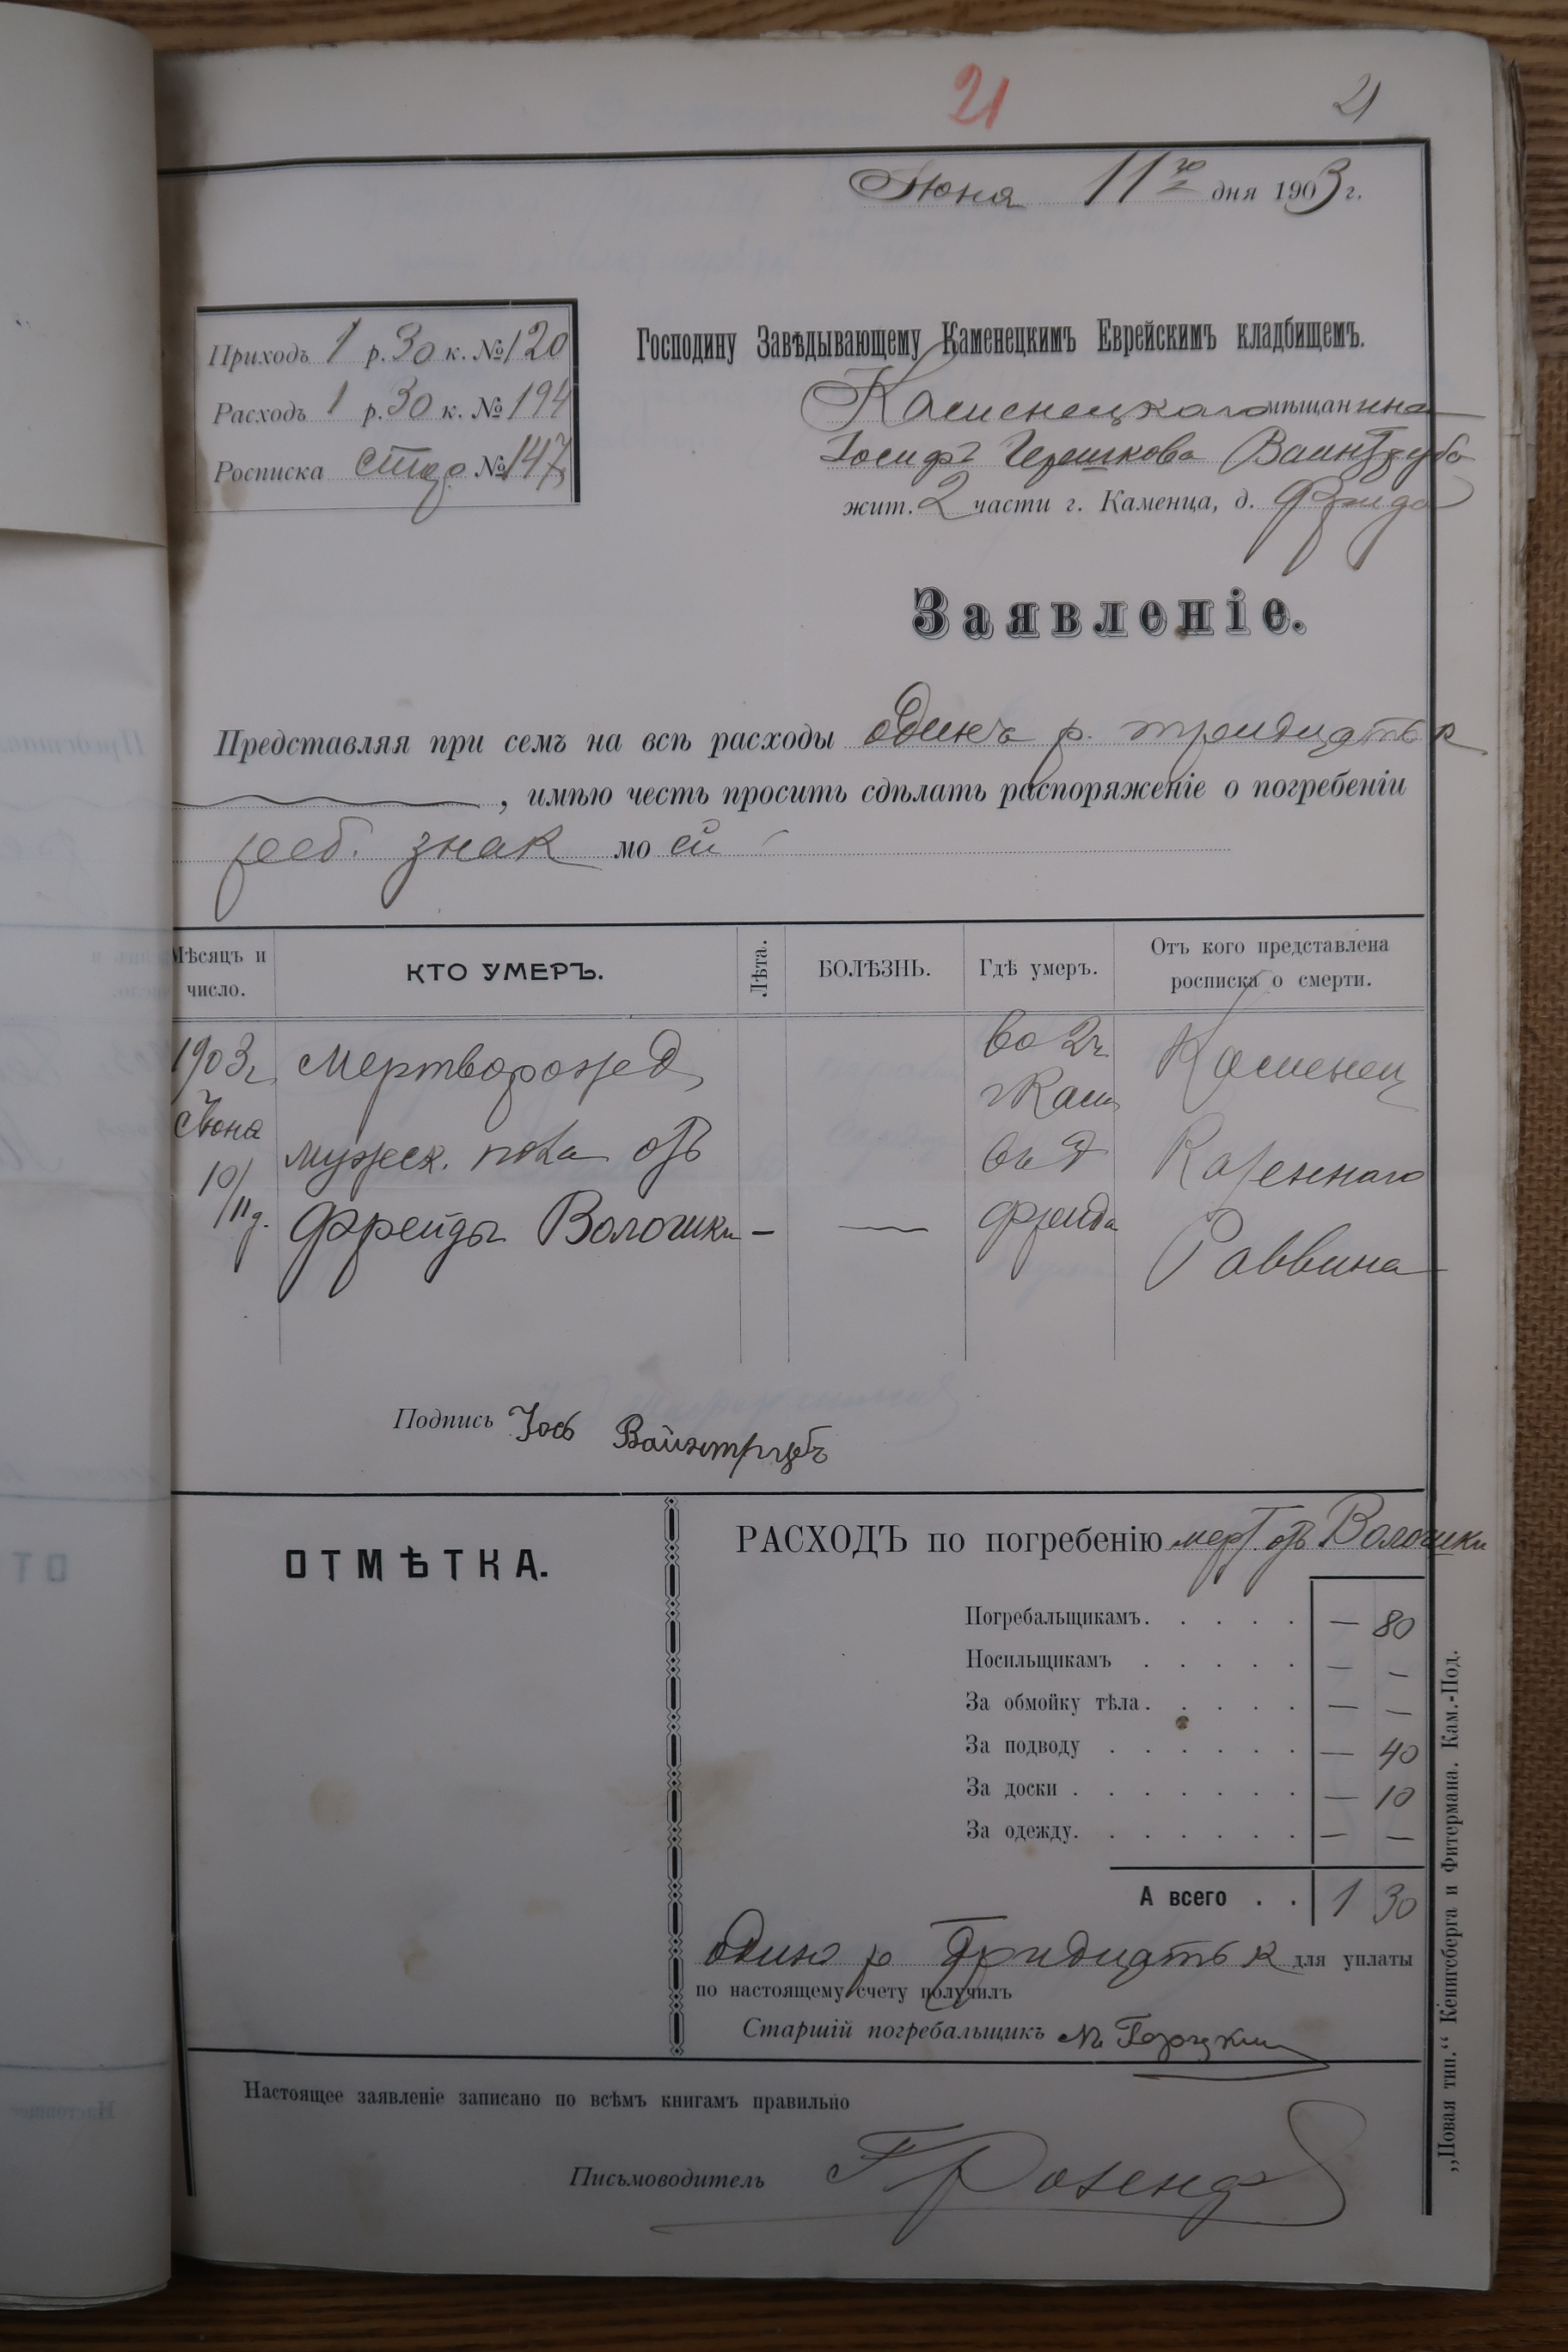 21 21
Июня 11го дня 1903 г.
Приходъ 1 р. 30 к. № 120
Расходъ 1 р. 30 к. № 194
Росписка № 147
Господину Завѣдывающему Каменецкимъ Еврейскимъ кладбищемъ.
Каменецкаго мѣщанина
Іосифъ Гершкова Ваинтруба
жит. 2 части г. Каменца, д. Фрида
Заявленіе.
Представляя при семъ на всѣ расходы одинъ р. тридцать к
, имѣю честь просить сдѣлать распоряженіе о погребеніи
реб. знак моей
Мѣсяцъ и число. КТО УМЕРЪ. Лѣта. БОЛѢЗНЬ. Гдѣ умеръ. Отъ кого представлена росписка о смерти.
1903г мертворожед во 2ч. Каменец
Іюна мужеск. пола отъ г Кам Казеннаго
10/11д. Фрейды Волошки — — въ д Фрида Раввина
Подпись Іось Вайнтрубъ
ОТМѢТКА.
РАСХОДЪ по погребенію мерт. отъ Волошки
Погребальщикамъ. . . . . — 80
Носильщикамъ . . . . . — —
За обмойку тѣла. . . . . — —
За подводу . . . . . . — 40
За доски . . . . . . . — 10
За одежду. . . . . . . — —
А всего . . 1 30
один р тридцать к для уплаты
по настоящему счету получилъ
Старшій погребальщикъ
Настоящее заявленіе записано по всѣмъ книгамъ правильно
Письмоводитель
„Новая тип.“ Кенигсберга и Фитермана. Кам.-Под.